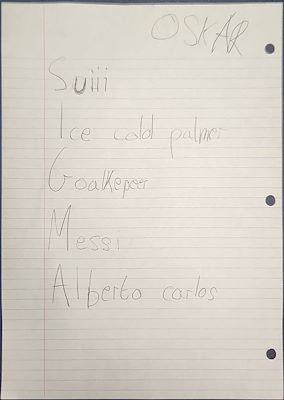 OSKAR
Suiii
Ice cold palmer
Goalkepeer
Messi
Alberto carlos